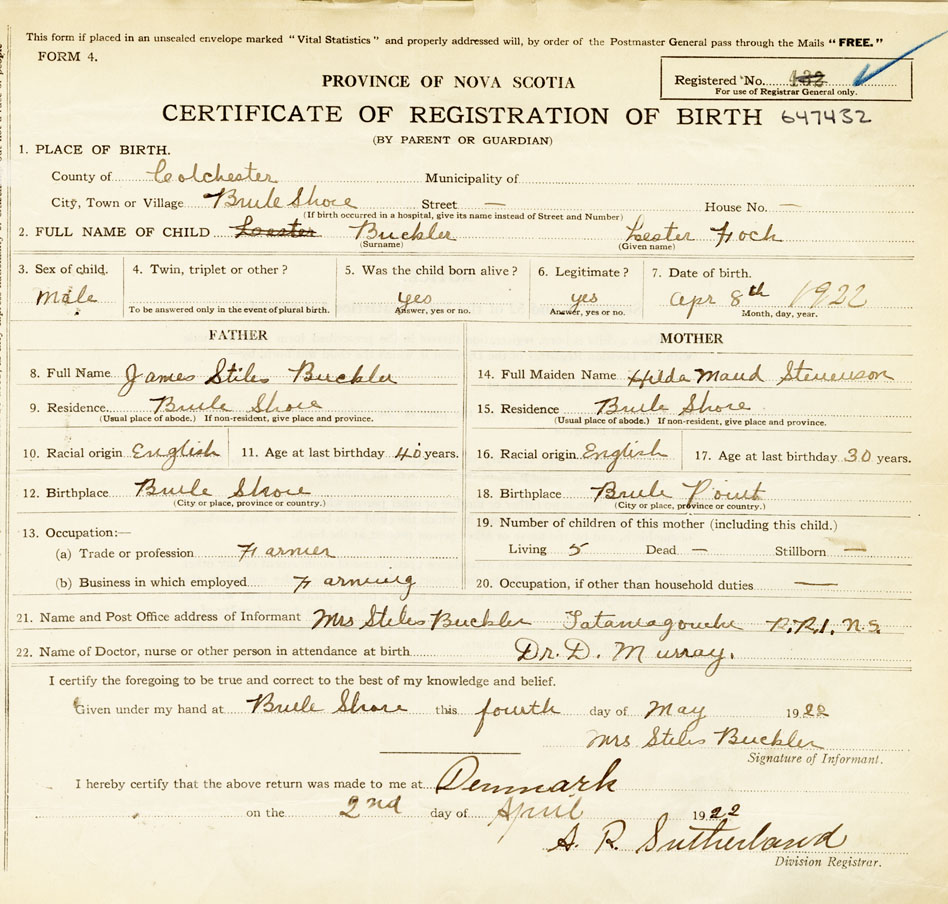 This form if placed in an unsealed envelope marked "Vital Statistics" and properly addressed will, by order of the Postmaster General pass through the Mails "FREE."
FORM 4.
PROVINCE OF NOVA SCOTIA
Registered No. 132
For use of Registrar General only.
CERTIFICATE OF REGISTRATION OF BIRTH 647432
(BY PARENT OR GUARDIAN)
1. PLACE OF BIRTH.
County of Colchester Municipality of
City, Town or Village Brule Shore Street — House No. —
(If birth occurred in a hospital, give its name instead of Street and Number)
2. FULL NAME OF CHILD Buckler Lester Foch
(Surname) (Given name)
3. Sex of child. 4. Twin, triplet or other? 5. Was the child born alive? 6. Legitimate? 7. Date of birth.
Male yes yes Apr 8th 1922
To be answered only in the event of plural birth. Answer, yes or no. Answer, yes or no. Month, day, year.
FATHER MOTHER
8. Full Name James Stiles Buckler 14. Full Maiden Name Hilda Maud Stevenson
9. Residence Brule Shore 15. Residence Brule Shore
(Usual place of abode.) If non-resident, give place and province. (Usual place of abode.) If non-resident, give place and province.
10. Racial origin English 11. Age at last birthday 40 years. 16. Racial origin English 17. Age at last birthday 30 years.
12. Birthplace Brule Shore 18. Birthplace Brule Point
(City or place, province or country.) (City or place, province or country.)
13. Occupation:— 19. Number of children of this mother (including this child.)
(a) Trade or profession Farmer Living 5 Dead — Stillborn —
(b) Business in which employed Farming 20. Occupation, if other than household duties —
21. Name and Post Office address of Informant Mrs Stiles Buckler Tatamagouche R.R.1. N.S.
22. Name of Doctor, nurse or other person in attendance at birth Dr. D. Murray.
I certify the foregoing to be true and correct to the best of my knowledge and belief.
Given under my hand at Brule Shore this fourth day of May 1922
Mrs Stiles Buckler
Signature of Informant.
I hereby certify that the above return was made to me at Denmark
on the 2nd day of April 1922
A. R. Sutherland
Division Registrar.